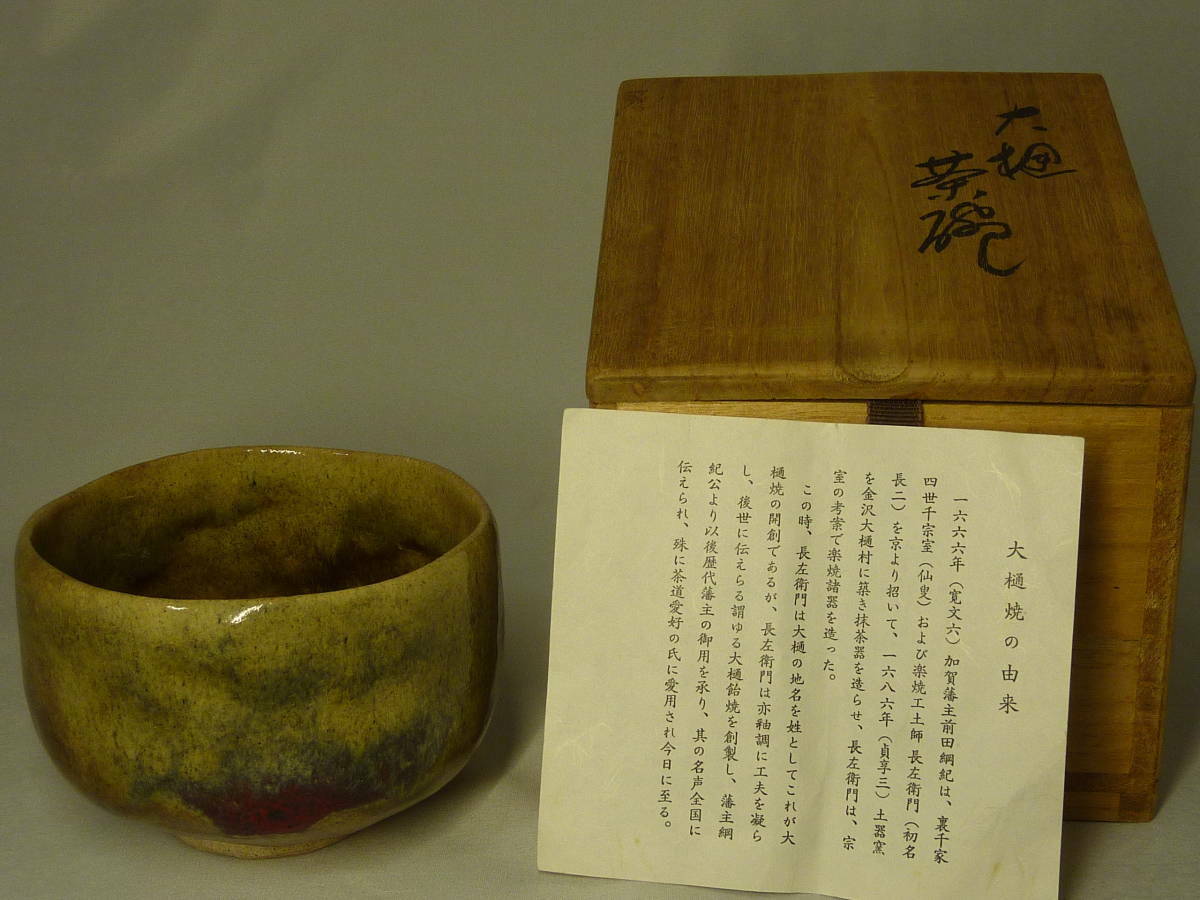 大樋
茶碗
大樋焼の由来
一六六六年（寛文六）加賀藩主前田綱紀は、裏千家
四世千宗室（仙叟）および楽焼工土師長左衛門（初名
長二）を京より招いて、一六八六年（貞享三）土器窯
を金沢大樋村に築き抹茶器を造らせ、長左衛門は、宗
室の考案で楽焼諸器を造った。
この時、長左衛門は大樋の地名を姓としてこれが大
樋焼の開創であるが、長左衛門は亦釉調に工夫を凝ら
し、後世に伝えらる謂ゆる大樋飴焼を創製し、藩主綱
紀公より以後歴代藩主の御用を承り、其の名声全国に
伝えられ、殊に茶道愛好の氏に愛用され今日に至る。